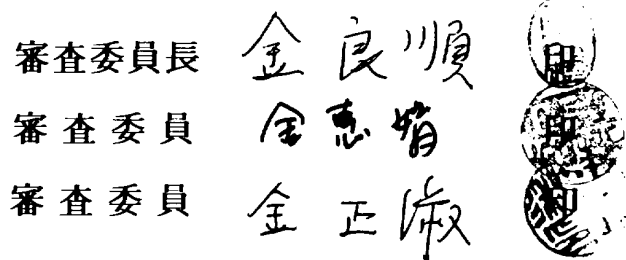 審査委員長 金良順 印
審査委員 金惠 印
審査委員 金正淑 印